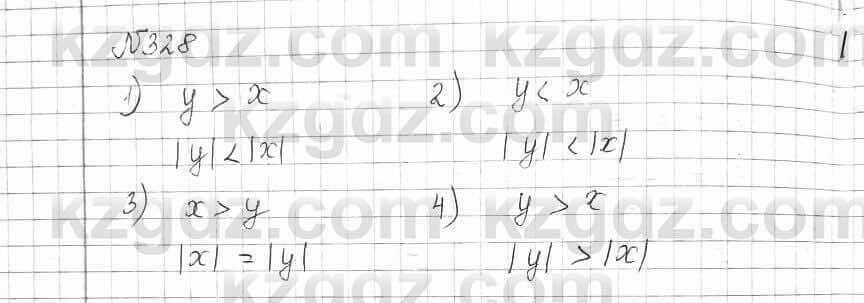 kzgdz.com kzgdz.com
№328
1) y > x 2) y < x
kzgdz.com
|y| < |x| |y| < |x|
3) x > y 4) y > x
kzgdz.com kzgdz.com
|x| = |y| |y| > |x|
kzgdz.com